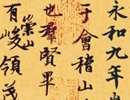 永和九年
于會稽山
也群賢畢
有崇山峻領茂